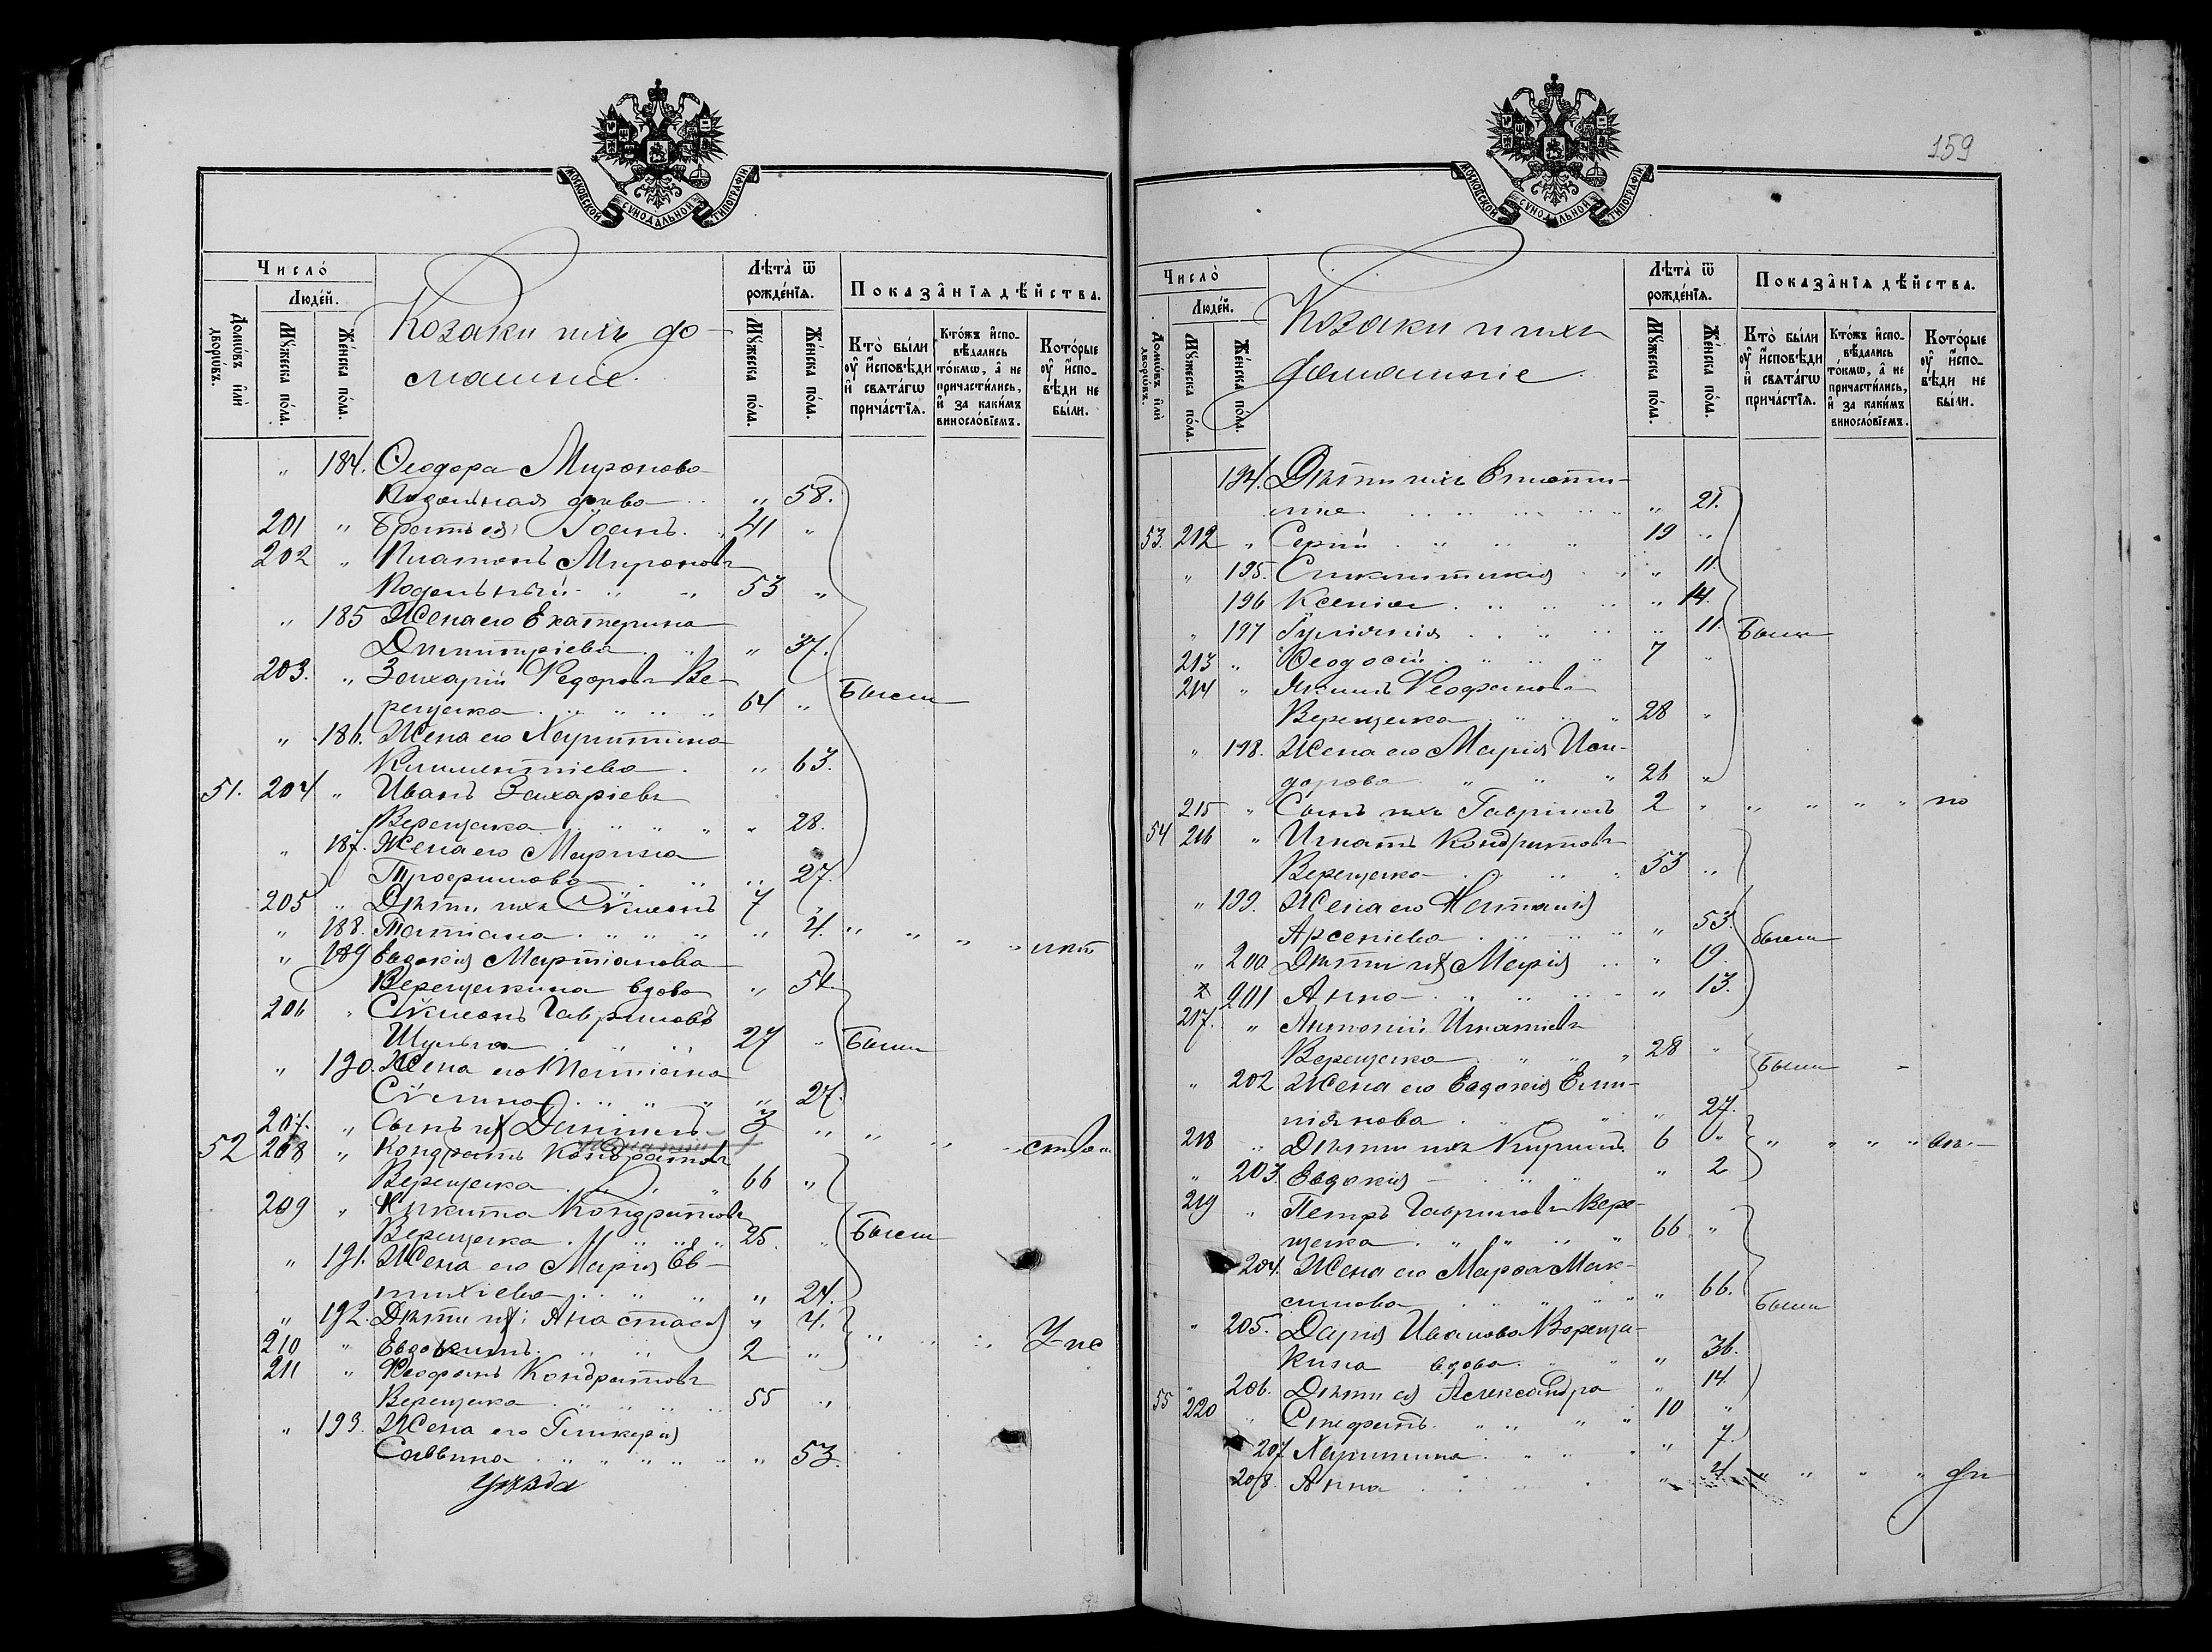 МОСКОВСКОЙ СУНОДАЛЬНОЙ ТИПОГРАФІИ
Число̀
Людéй.
Домѡ́въ и҆лѝ дворѡ́въ.
Мꙋ́жеска по́ла.
Жéнска по́ла.
Козаки ихъ до-
машніе.
Лѣта̀ ѿ рождéнїѧ.
Мꙋ́жеска по́ла.
Жéнска по́ла.
Показа̂нїѧ дѣ́йства.
Кто̀ бы́ли ᲂу҆ и҆сповѣ́ди и҆ свѧта́гѡ прича́стїѧ.
Кто́жъ и҆спо-вѣ́дались то́кмѡ, а҆ не причасти́лись, и҆ за каки́мъ виносло́вїемъ.
Кото́рые ᲂу҆ и҆спо-вѣ́ди не бы́ли.
„ 184. Ѳеодора Миронова
Подольная вдова „ 58.
201 „ Братъ ея Іоанъ. 41 „
202 „ Платонъ Мироновъ
Подольный 53 „
„ 185 Жена его Екатерина
Димитріева „ 37.
203. „ Захарій Ѳедоровъ Ве-
рещака 64 „ Были
„ 186. Жена его Харитина
Климентіева „ 63.
51. 204 „ Иванъ Захаріевъ
Верещака „ 28.
„ 187. Жена его Марина
Трофимова „ 27.
205 „ Дѣти ихъ Сѵмеонъ 7 „
„ 188. Татіана „ 4. „ „ „ „
„ 189 Евдокія Мартіанова
Верещакина вдова „ 54.
206 „ Сѵмеонъ Гавриловъ
Шульга 27 „ Были
„ 190. Жена его Татіана
„ 27.
207. „ Сынъ ихъ Даніилъ 3 „ „ „
52 208 „ Кондратъ Кондратовъ
Верещака 66 „
209 „ Никита Кондратовъ
Верещака 25. „ Были
„ 191. Жена его Марія Ев-
тихіева „ 24.
„ 192. Дѣти ихъ: Анастасія „ 4.
210 „ Евдокимъ 2 „ „ „ „
211 „ Ѳеофанъ Кондратовъ
Верещака 55 „
„ 193. Жена его Гликерія
Саввина „ 53.
уѣзда
159
МОСКОВСКОЙ СУНОДАЛЬНОЙ ТИПОГРАФІИ
Число̀
Людéй.
Домѡ́въ и҆лѝ дворѡ́въ.
Мꙋ́жеска по́ла.
Жéнска по́ла.
Козаки и ихъ
домашніе
Лѣта̀ ѿ рождéнїѧ.
Мꙋ́жеска по́ла.
Жéнска по́ла.
Показа̂нїѧ дѣ́йства.
Кто̀ бы́ли ᲂу҆ и҆сповѣ́ди и҆ свѧта́гѡ прича́стїѧ.
Кто́жъ и҆спо-вѣ́дались то́кмѡ, а҆ не причасти́лись, и҆ за каки́мъ виносло́вїемъ.
Кото́рые ᲂу҆ и҆спо-вѣ́ди не бы́ли.
194. Дѣти ихъ
„ 21.
53. 212 „ Сергій 19 „
„ 195. „ 11.
196 Ксенія „ 14.
„ 197 Іуліанія „ 11. Были
213 „ Ѳеодосій 7 „
214 „ Якимъ Ѳеофановъ
Верещака 28 „
„ 198. Жена его Марія Иси-
дорова 26 „
215 „ Сынъ ихъ Гавріилъ 2 „ „ „ „ „ по
54 216 „ Игнатъ Кондратовъ
Верещака 53 „
„ 199. Жена его Наталія
Арсеніева „ 53.
„ 200 Дѣти ихъ Марія „ 19. Были
„ 201 Анна „ 13.
217. „ Антоній Игнатіевъ
Верещака 28 „
„ 202 Жена его Евдокія Еми- Были
ліянова „ 27.
218 „ Дѣти ихъ Кирилъ 6 „ „ „ „ „
„ 203. Евдокія „ 2
219 „ Петръ Гавриловъ Вере-
щака 66 „
204. Жена его Марѳа Мак-
симова „ 66.
„ 205. Дарія Иванова Вереща- Были
кина вдова „ 36.
„ 206. Дѣти ея Александра „ 14.
55 220 „ Стефанъ 10 „
207 Харитина „ 7.
208. Анна „ 4 „ „ „ „